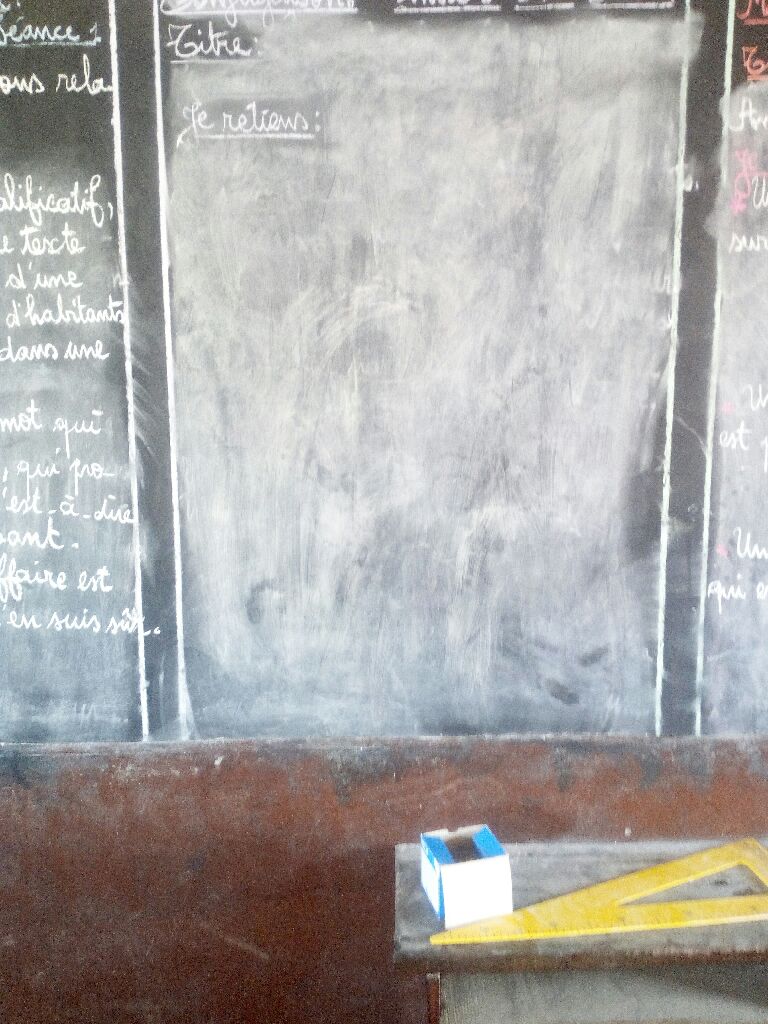 Séance 1
ous rela
alificatif,
e texte
d'une
d'habitants
dans une
mot qui
, qui pro-
'est-à-dire
sant.
ffaire est
'en suis sûr.
Titre:
Je retiens:
Un
sur
Un
est p
Un
qui e